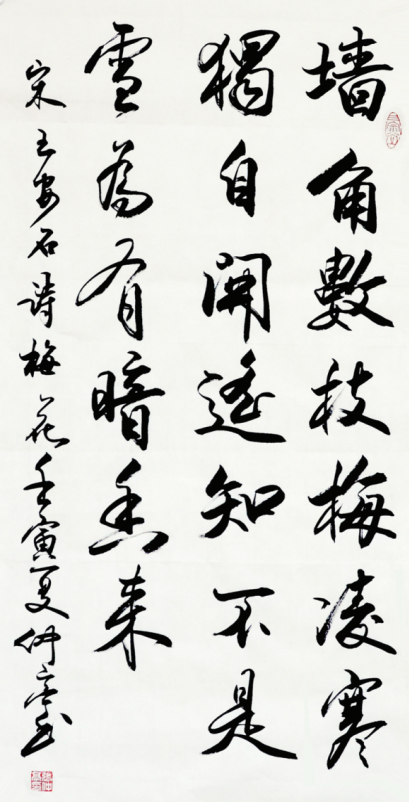 墙角數枝梅凌寒
獨自開遥知不是
雪為有暗香来
宋王安石詩梅花壬寅夏仲